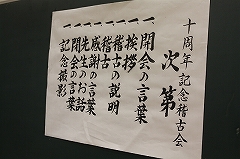 十周年記念稽古会
次第
一 開会の言葉
一 挨拶
一 稽古の説明
一 稽古
一 感謝の言葉
一 先生のお話
一 閉会の言葉
記念撮影